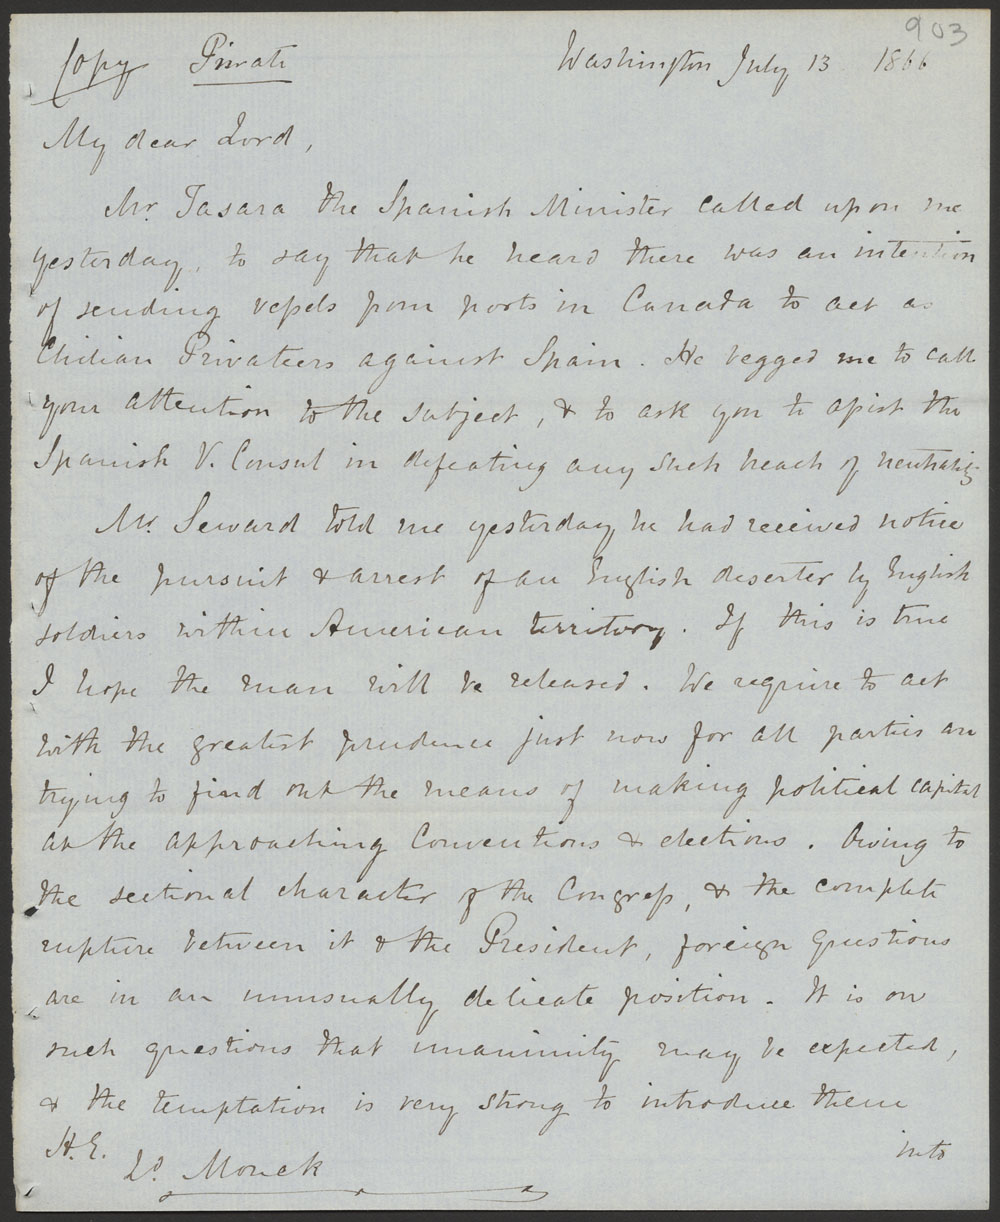 903
Copy Private Washington July 13 1866
My dear Lord,
Mr. Tasara the Spanish Minister called upon me
yesterday, to say that he heard there was an intention
of sending vessels from ports in Canada to act as
Chilian Privateers against Spain. He begged me to call
your attention to the subject, & to ask you to assist the
Spanish V. Consul in defeating any such breach of neutrality
Mr. Seward told me yesterday he had received notice
of the pursuit & arrest of an English deserter by English
soldiers within American territory. If this is true
I hope the man will be released. We require to act
with the greatest prudence just now for all parties are
trying to find out the means of making political capital
at the approaching Conventions & elections. Owing to
the sectional character of the Congress, & the complete
rupture between it & the President, foreign questions
are in an unusually delicate position. It is on
such questions that unanimity may be expected,
& the temptation is very strong to introduce them
into
H.E.
Ld. Monck